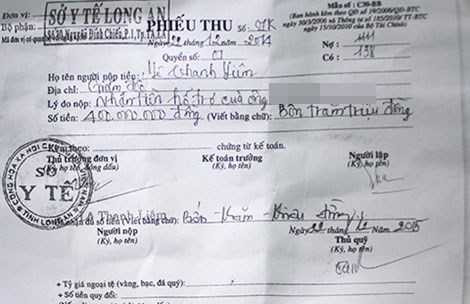 Đơn vị: SỞ Y TẾ LONG AN
Bộ phận:
Mã đơn vị có quan
PHIẾU THU Số: 01K
Mẫu số : C30-BB
(Ban hành kèm theo QĐ số 19/2006/QĐ-BTC
ngày 30/3/2006 và Thông tư số 185/2010/TT-BTC
ngày 15/10/2010 của Bộ Tài Chính)
Ngày 22 tháng 12 năm 2014
Quyển số: 01
Nợ : 111
Có : 138
Họ tên người nộp tiền: Thanh Liêm
Địa chỉ: Giám đốc
Lý do nộp: Nhận tiền hỗ trợ của ông
Số tiền: 400.000.000 đồng (Viết bằng chữ): Bốn trăm triệu đồng
Kèm theo: chứng từ kế toán.
Thủ trưởng đơn vị
(Ký, họ tên, đóng dấu)
Kế toán trưởng
(Ký, họ tên)
Người lập
(Ký, họ tên)
CỘNG HÒA XÃ HỘI
SỞ
Y TẾ
TỈNH LONG AN
Thanh Liêm
nhận đủ số tiền (Viết bằng chữ): Bốn trăm triệu đồng
Người nộp
(Ký, họ tên)
Ngày 22
Thủ quỹ
(Ký, họ tên)
+ Tỷ giá ngoại tệ (vàng, bạc, đá quý):
+ Số tiền quy đổi: